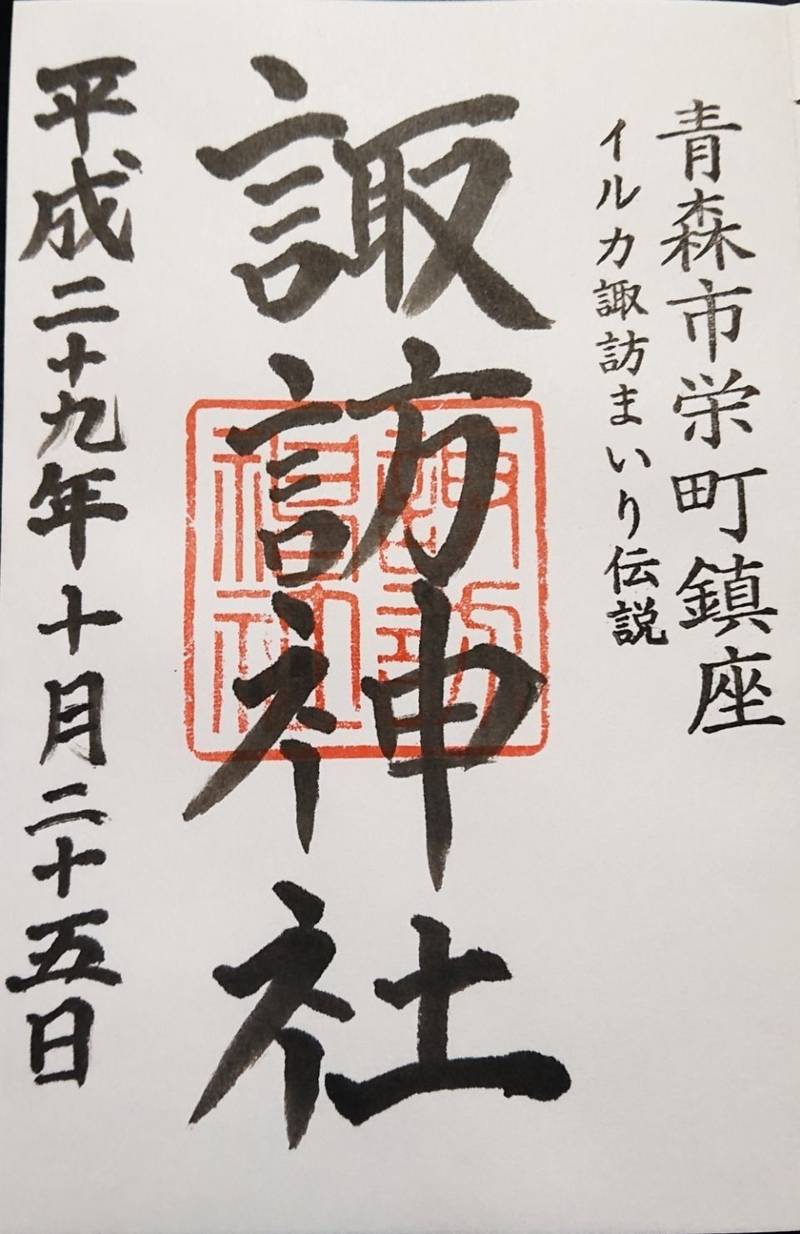 青森市栄町鎮座
イルカ諏訪まいり伝説
諏訪神社
平成二十九年十月二十五日